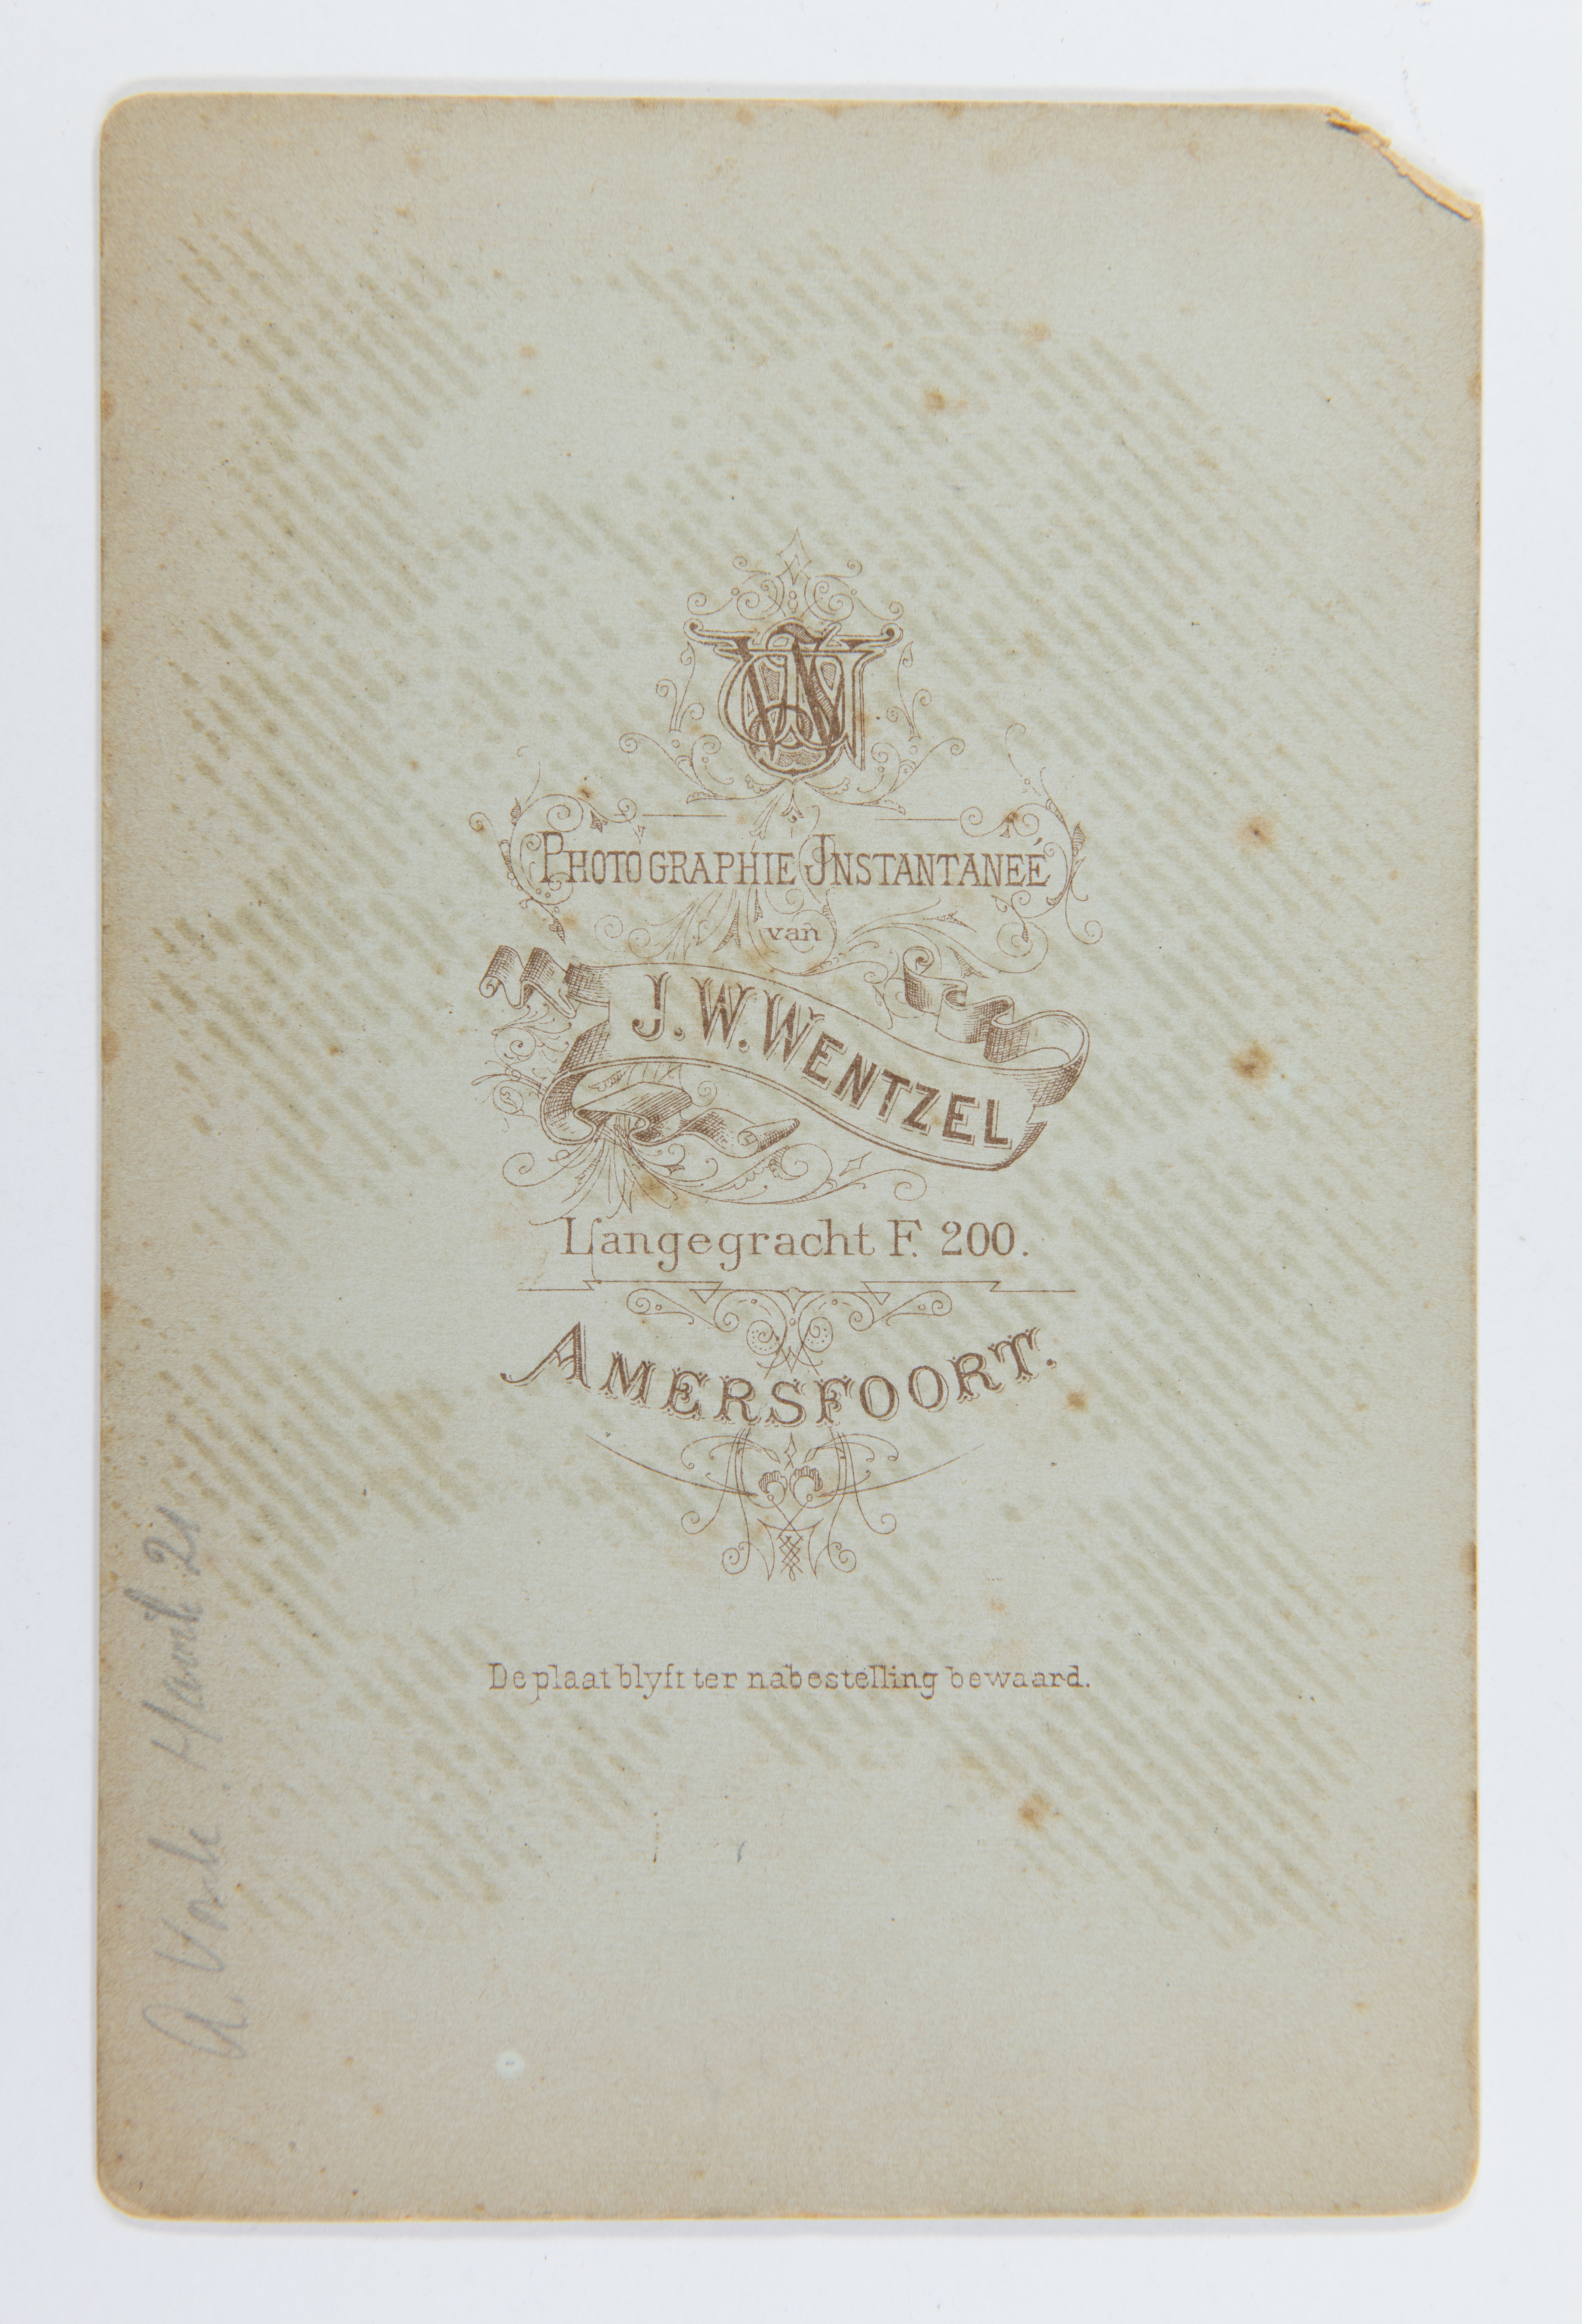 PHOTOGRAPHIE INSTANTANEÉ
van
J. W. WENTZEL
Langegracht F. 200.
AMERSFOORT.
De plaat blyft ter nabestelling bewaard.
A.
21